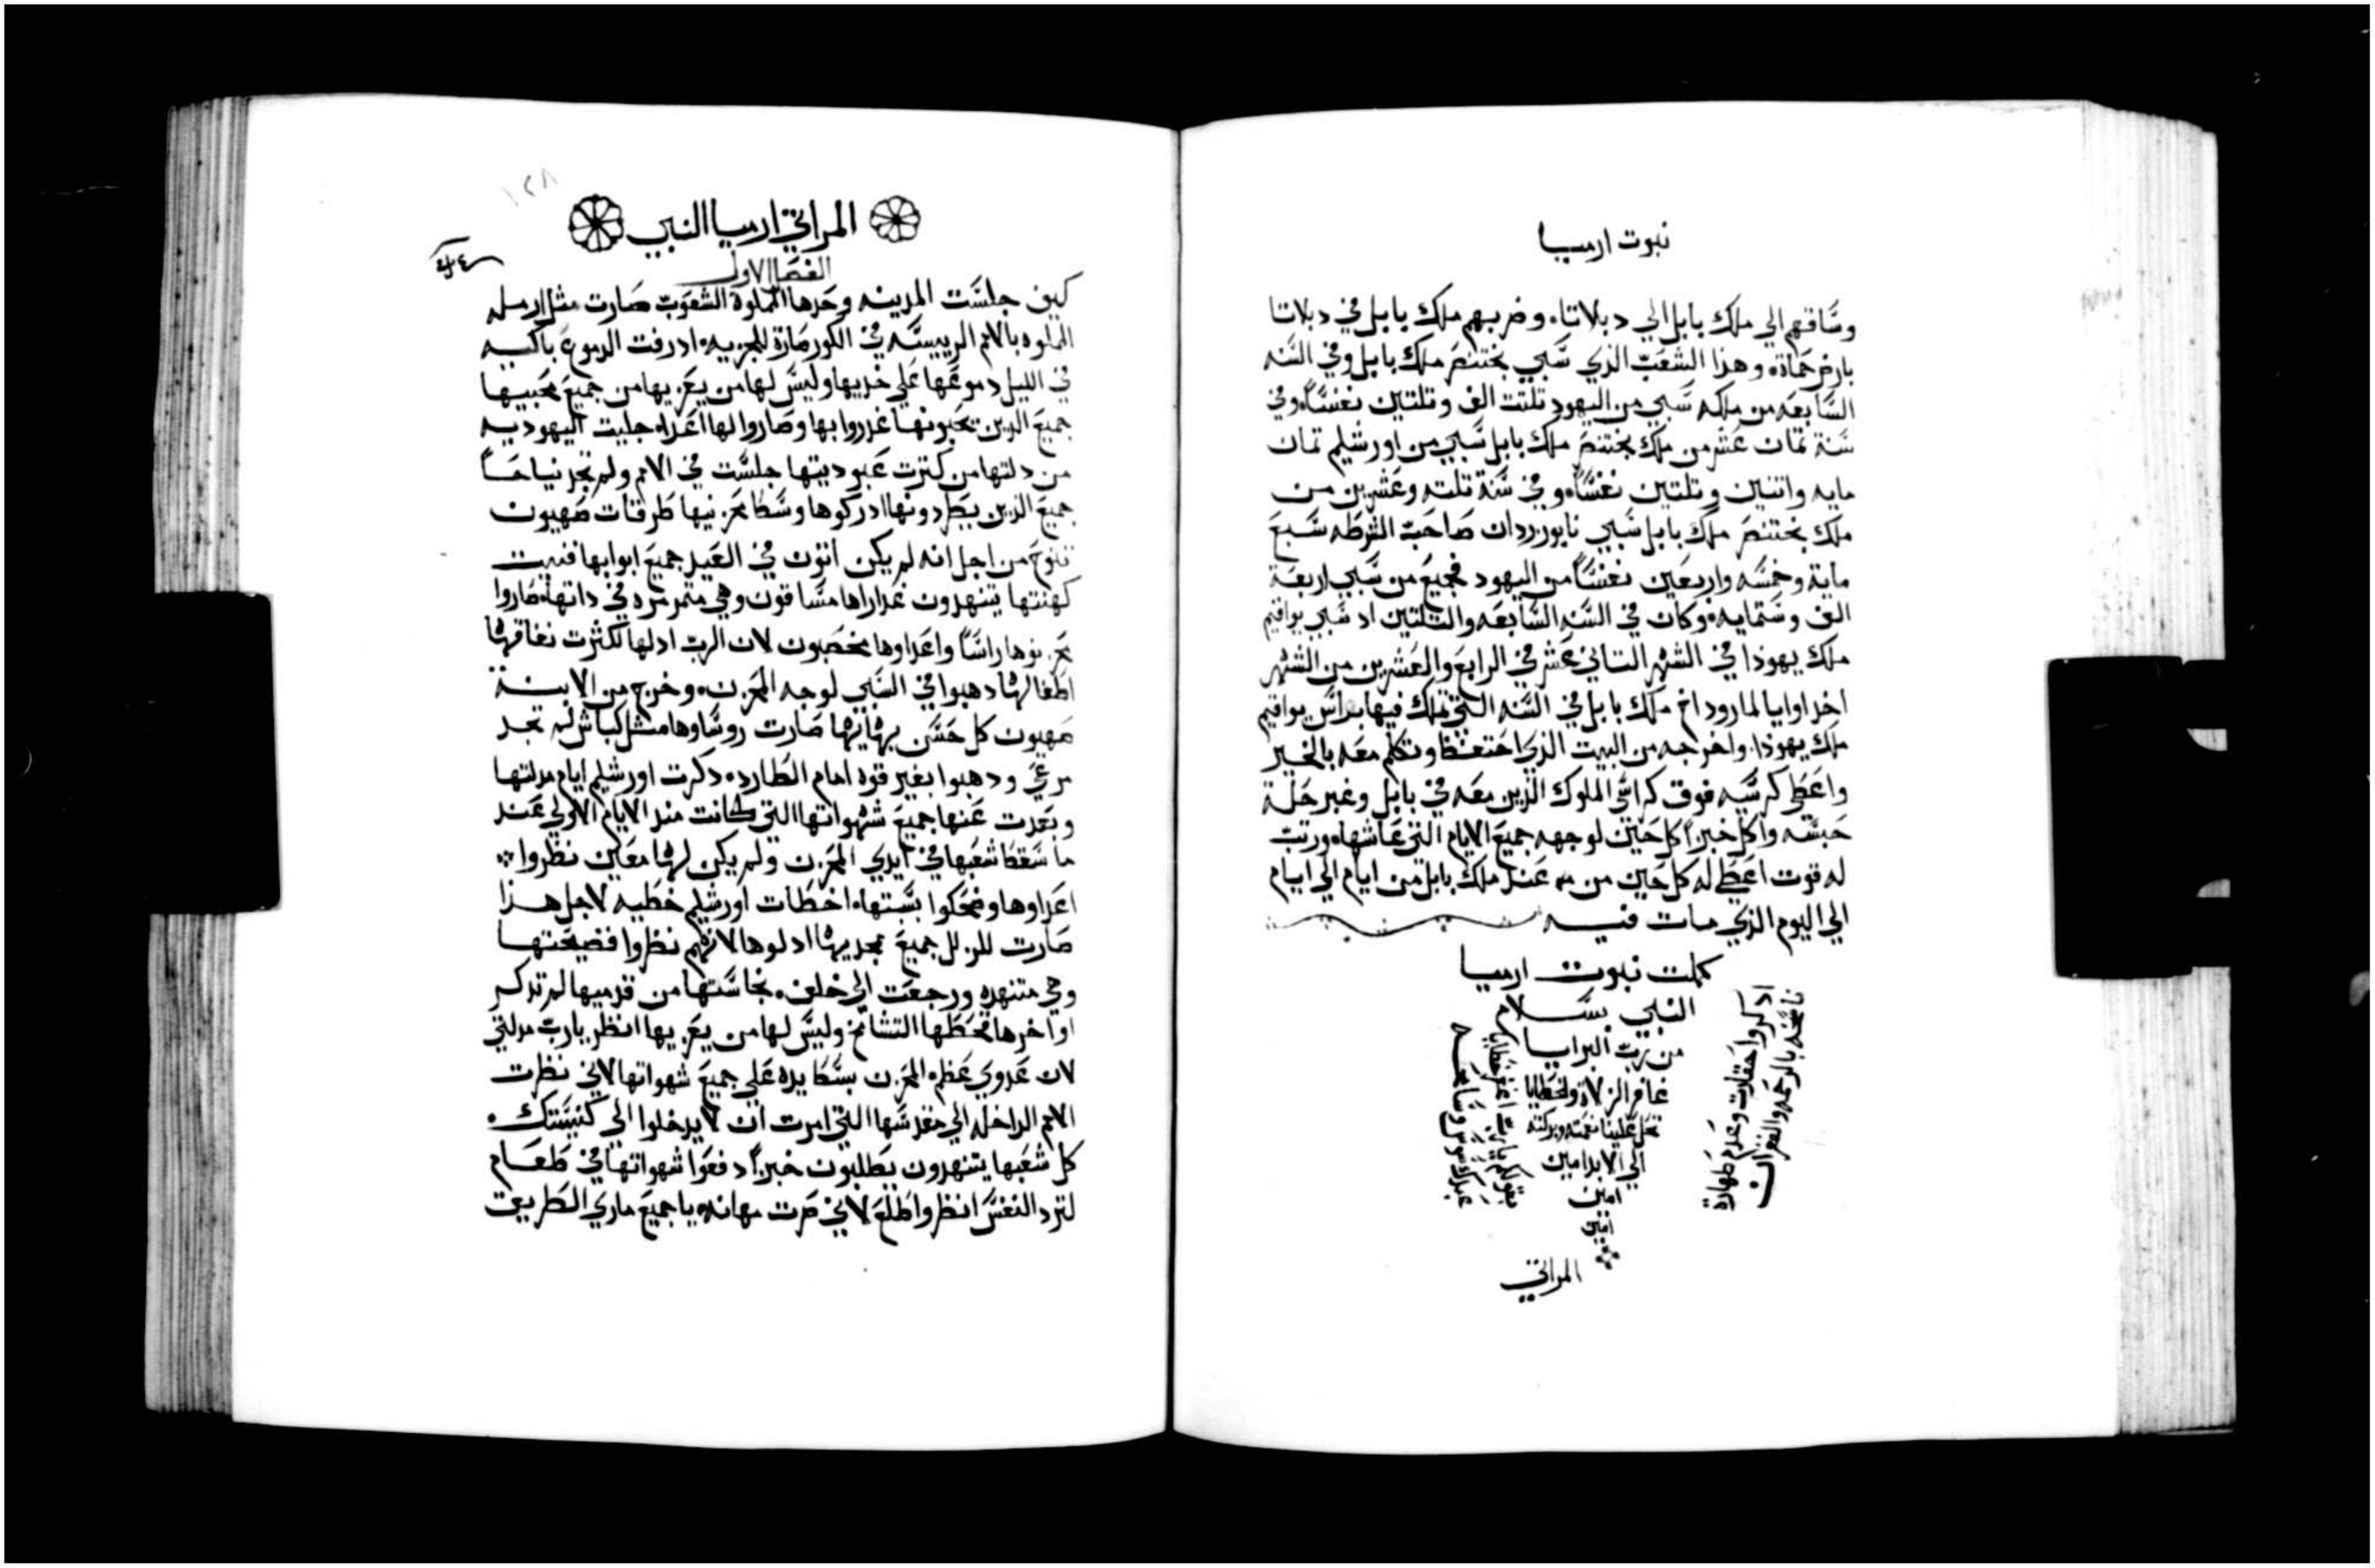 نبوت ارميا
وسَّاقهم الي ملك بابل الي دبلاتا. وضربهم ملك بابل في دبلاتا
بارض حماة. وهدا الشعب الذي سَّبي بختنصر ملك بابل وفي السَّنه
السَّابعه من ملكه سَّبي من اليهود تلتت الف وتلتين نفسَّاً. وفي
سَّنة تمان عشر من ملك بختنصر ملك بابل سَّبي من اورشليم تمان
مايه واتنين وتلتين نفسَّاً. وفي سَّنة تلته وعشرين من
ملك بختنصر ملك بابل سَّبي نابوزردان صاحب الشرطه سَّبع
ماية وخمسَّه واربعين نفسَّاً من اليهود فجميع من سَّبي اربعة
الف وسَّتمايه. وكان في السَّنه السَّابعه والتلتين اد سَّبي يواقيم
ملك يهودا في الشهر التاني عشر في الرابع والعشرين من الشهر
اخد اوايا لماروداخ ملك بابل في السَّنه التي ملك فيها براسَّ يواقيم
ملك يهودا. واخرجه من البيت الذي احتفظ وتكلم معه بالخير
واعطي كرسَّيه فوق كراسَّي الملوك الذين معه في بابل وغير حلة
حبسَّته واكل خبزاً كل حين لوجهه جميع الايام التي عاشها. ورتب
له قوت اعطي له كل حين من عند ملك بابل من ايام الي ايام
الي اليوم الذي مات فيه
كملت نبوت ارميا
النبي بسَّلام
من رب البرايا
غافر الزلاة والخطايا
تحل علينا نعمته وبركته
الي الابد امين
امين
امين
ادكروا حقارت وعدم طهارة
ناسخه بالرحمه والغفران
المراتي
المراتي ارميا النبي
الفصل الاول
كيف جلسَّت المدينه وحدها المملوة الشعوب صارت مثل ارمله
المملوه بالامم الرييسَّه في الكور صارة للجزيه. ادرفت الدموع باكيه
في الليل دموعها علي خديها وليسَّ لها من يعزيها من جميع محبيها
جميع الدين يحبونها غدروا بها وصاروا لها اعداء جليت اليهوديه
من دلتها من كترت عبوديتها جلسَّت في الامم ولم تجد نياحاً
جميع الذين يطردونها ادركوها وسَّط محزنيها طرقات صهيون
تنوح من اجل انه لم يكن اتون في العيد جميع ابوابها فنيت
كهنتها يتنهدون عداراها مسَّاقون وهي متمرمره في داتها. صاروا
محزنوها راسَّاً واعداوها مخصبون لان الرب ادلها لكثرت نفاقها
اطفالها دهبوا في السَّبي لوجه المحزن. وخرج من الابنة
صهيون كل حسَّن بهايها صارت روسَّاوها مثل كباش لم تجد
مرعي ودهبوا بغير قوه امام الطارد. دكرت اورشليم ايام مدلتها
وبعدت عنها جميع شهواتها التي كانت مند الايام الاولي عند
ما سَّقط شعبها في ايدي المحزن ولم يكن لها معين نظروا
اعداوها وضحكوا بسَّبتها. اخطات اورشليم خطيه لاجل هدا
صارت للزلل جميع ممجديها ادلوها لانهم نظروا فضيحتها
وهي متنهده ورجعت الي خلف. نجاسَّتها من قدميها لم تدكر
اواخرها فحطها التشامخ وليسَّ لها من يعزيها انظر يارب مدلتي
لان عدوي عظم المحزن بسَّط يده علي جميع شهواتها لاني نظرت
الامم الداخله الي مقدسَّها التي امرت ان لا يدخلوا الي كنيسَّتك.
كل شعبها يتنهدون يطلبون خبزاً دفعوا شهواتها في طعام
لترد النفسَّ انظر واطلع لاني صرت مهانه يا جميع ماري الطريق